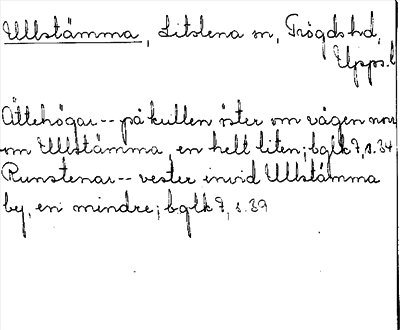 Ullstämma, Litslena sn, Trögds hd,
Upps. l
Ättehögar -- på kullen öster om vägen norr
om Ullstämma, en helt liten; bglk 7, s. 34
Runstenar -- vester invid Ullstämma
by, en mindre; bglk 7, s. 39